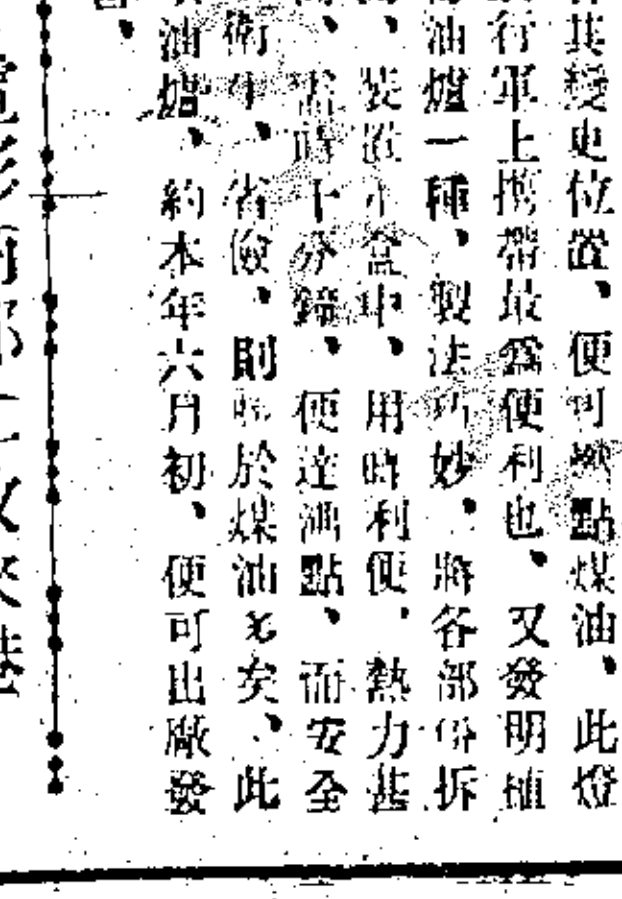 其變更位置、便可燃點煤油、此燈
行軍上携帶最爲便利也、又發明植
油爐一種、製法巧妙、將各部份拆
裝置小盒中、用時利便、熱力甚
需時十分鐘、便達沸點、而安全
衛生、省儉、則勝於煤油多矣、此
油爐、約本年六月初、便可出廠發